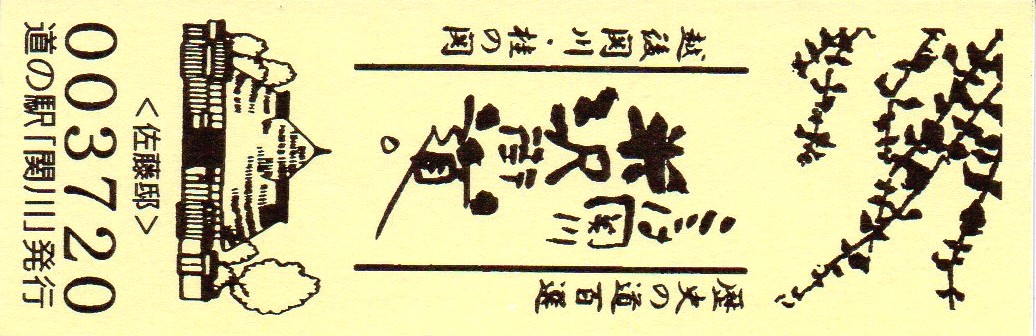 歴史の道百選
ここは
関川
米沢
街道
越後関川・桂の関
<佐藤邸>
003720
道の駅「関川」発行